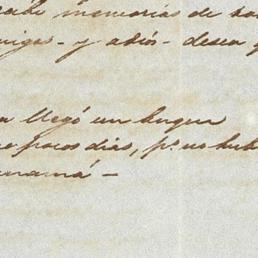 memorias de
migas - y adios - desea
llegó un buque
pocos dias, pº no hub
anamá -